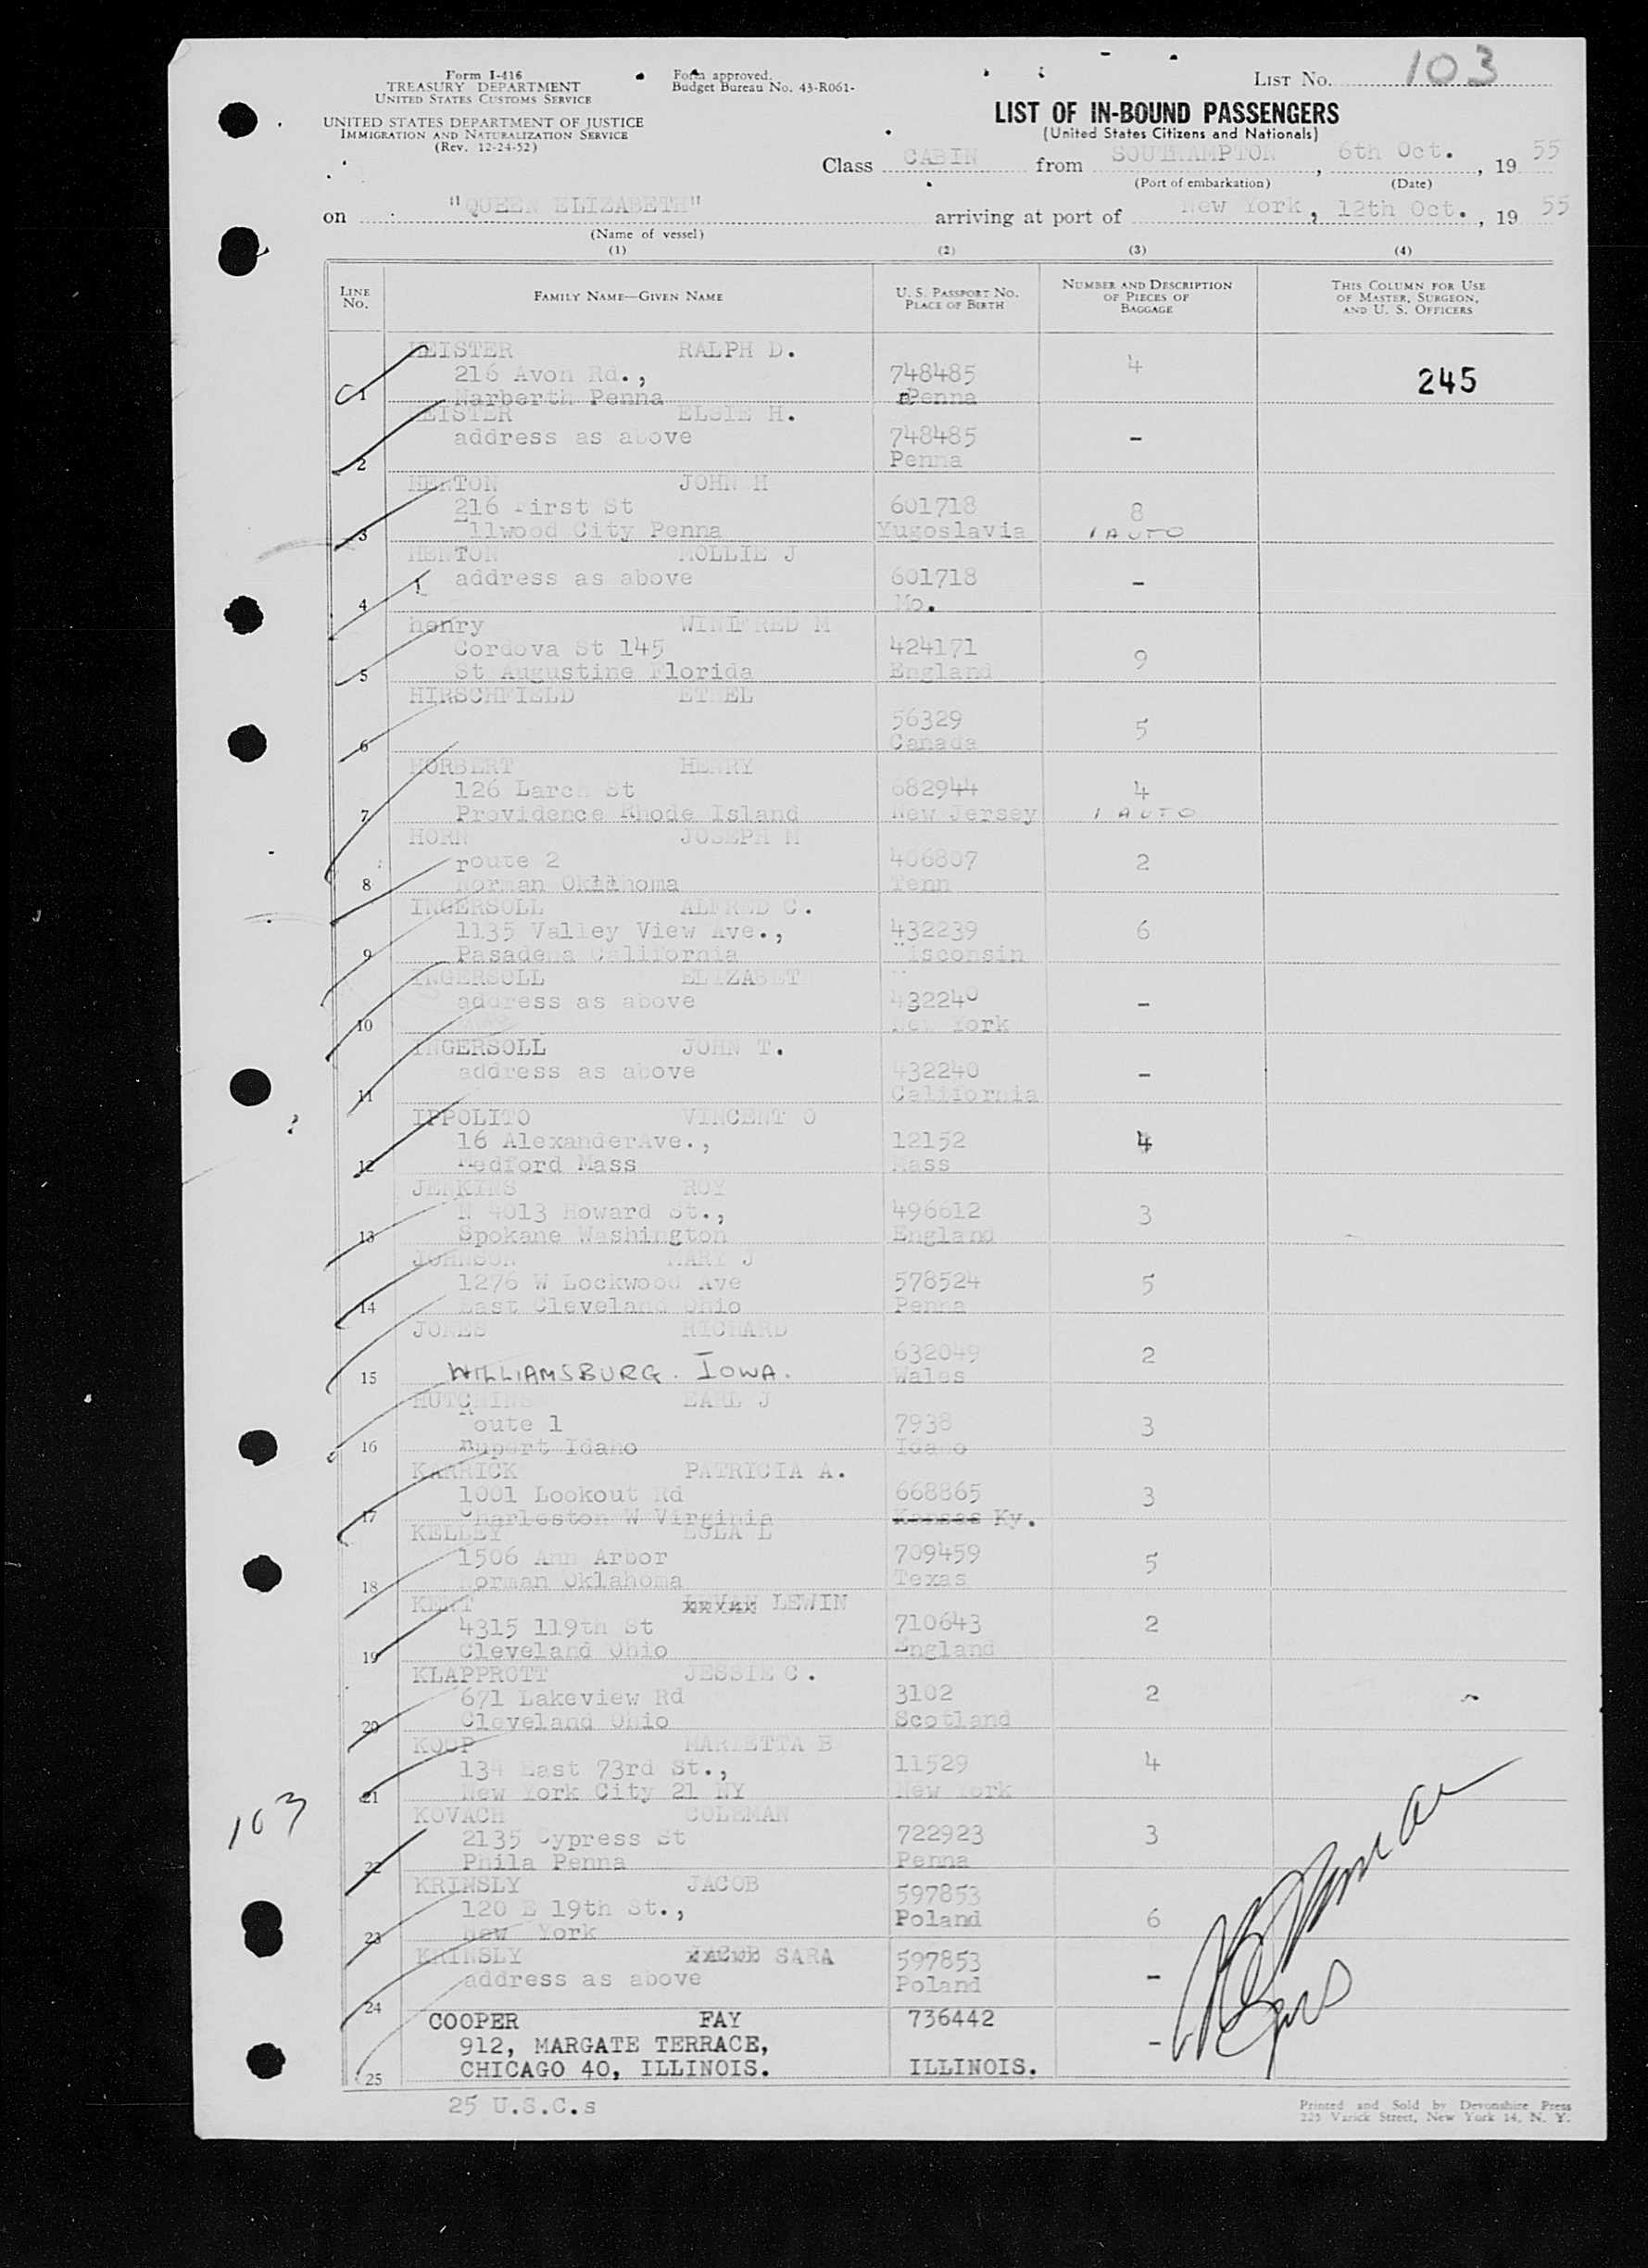 Form I-416
TREASURY DEPARTMENT
UNITED STATES CUSTOMS SERVICE
UNITED STATES DEPARTMENT OF JUSTICE
IMMIGRATION AND NATURALIZATION SERVICE
(Rev. 12-24-52)
Form approved.
Budget Bureau No. 43-R061-
LIST No. 103
LIST OF IN-BOUND PASSENGERS
(United States Citizens and Nationals)
Class CABIN from SOUTHAMPTON, 6th Oct., 19 55
(Port of embarkation) (Date)
on "QUEEN ELIZABETH" arriving at port of New York, 12th Oct., 19 55
(Name of vessel)
(1) (2) (3) (4)
LINE No. FAMILY NAME—GIVEN NAME U. S. PASSPORT No. PLACE OF BIRTH NUMBER AND DESCRIPTION OF PIECES OF BAGGAGE THIS COLUMN FOR USE OF MASTER, SURGEON, AND U. S. OFFICERS
HEISTER RALPH D.
216 Avon Rd., 748485 4 245
1 Narberth Penna Penna
HEISTER ELSIE H.
address as above 748485 -
2 Penna
HENTON JOHN H
216 First St 601718 8
3 Ellwood City Penna Yugoslavia 1 AUTO
HENTON MOLLIE J
address as above 601718 -
4 Mo.
henry WINIFRED M
Cordova St 145 424171 9
5 St Augustine Florida England
HIRSCHFIELD ETHEL
56329 5
6 Canada
HORBERT HENRY
126 Larch St 682944 4
7 Providence Rhode Island New Jersey 1 AUTO
HORN JOSEPH M
route 2 406807 2
8 Norman Oklahoma Tenn
INGERSOLL ALFRED C.
1135 Valley View Ave., 432239 6
9 Pasadena California Wisconsin
INGERSOLL ELIZABETH
address as above 432240 -
10 New York
INGERSOLL JOHN T.
address as above 432240 -
11 California
IPPOLITO VINCENT O
16 AlexanderAve., 12152 4
12 Medford Mass Mass
JENKINS ROY
N 4013 Howard St., 496612 3
13 Spokane Washington England
JOHNSON MARY J
1276 W Lockwood Ave 578524 5
14 East Cleveland Ohio Penna
JONES RICHARD
632049 2
15 WILLIAMSBURG. IOWA. Wales
HUTCHINS EARL J
Route 1 7938 3
16 Rupert Idaho Idaho
KARRICK PATRICIA A.
1001 Lookout Rd 668865 3
17 Charleston W Virginia Kansas Ky.
KELLEY ESLA L
1506 Ann Arbor 709459 5
18 Norman Oklahoma Texas
KENT LEWIN
4315 119th St 710643 2
19 Cleveland Ohio England
KLAPPROTT JESSIE C.
671 Lakeview Rd 3102 2
20 Cleveland Ohio Scotland
KOOP MARIETTA B
134 East 73rd St., 11529 4
21 New York City 21 NY New York
KOVACH COLEMAN
2135 Cypress St 722923 3
22 Phila Penna Penna
KRINSLY JACOB 597853
120 E 19th St., Poland 6
23 New York
KRINSLY JACOB SARA 597853
address as above Poland -
24
COOPER FAY 736442
912, MARGATE TERRACE, -
25 CHICAGO 40, ILLINOIS. ILLINOIS.
25 U.S.C.s
103
Printed and Sold by Devonshire Press
225 Varick Street, New York 14, N. Y.